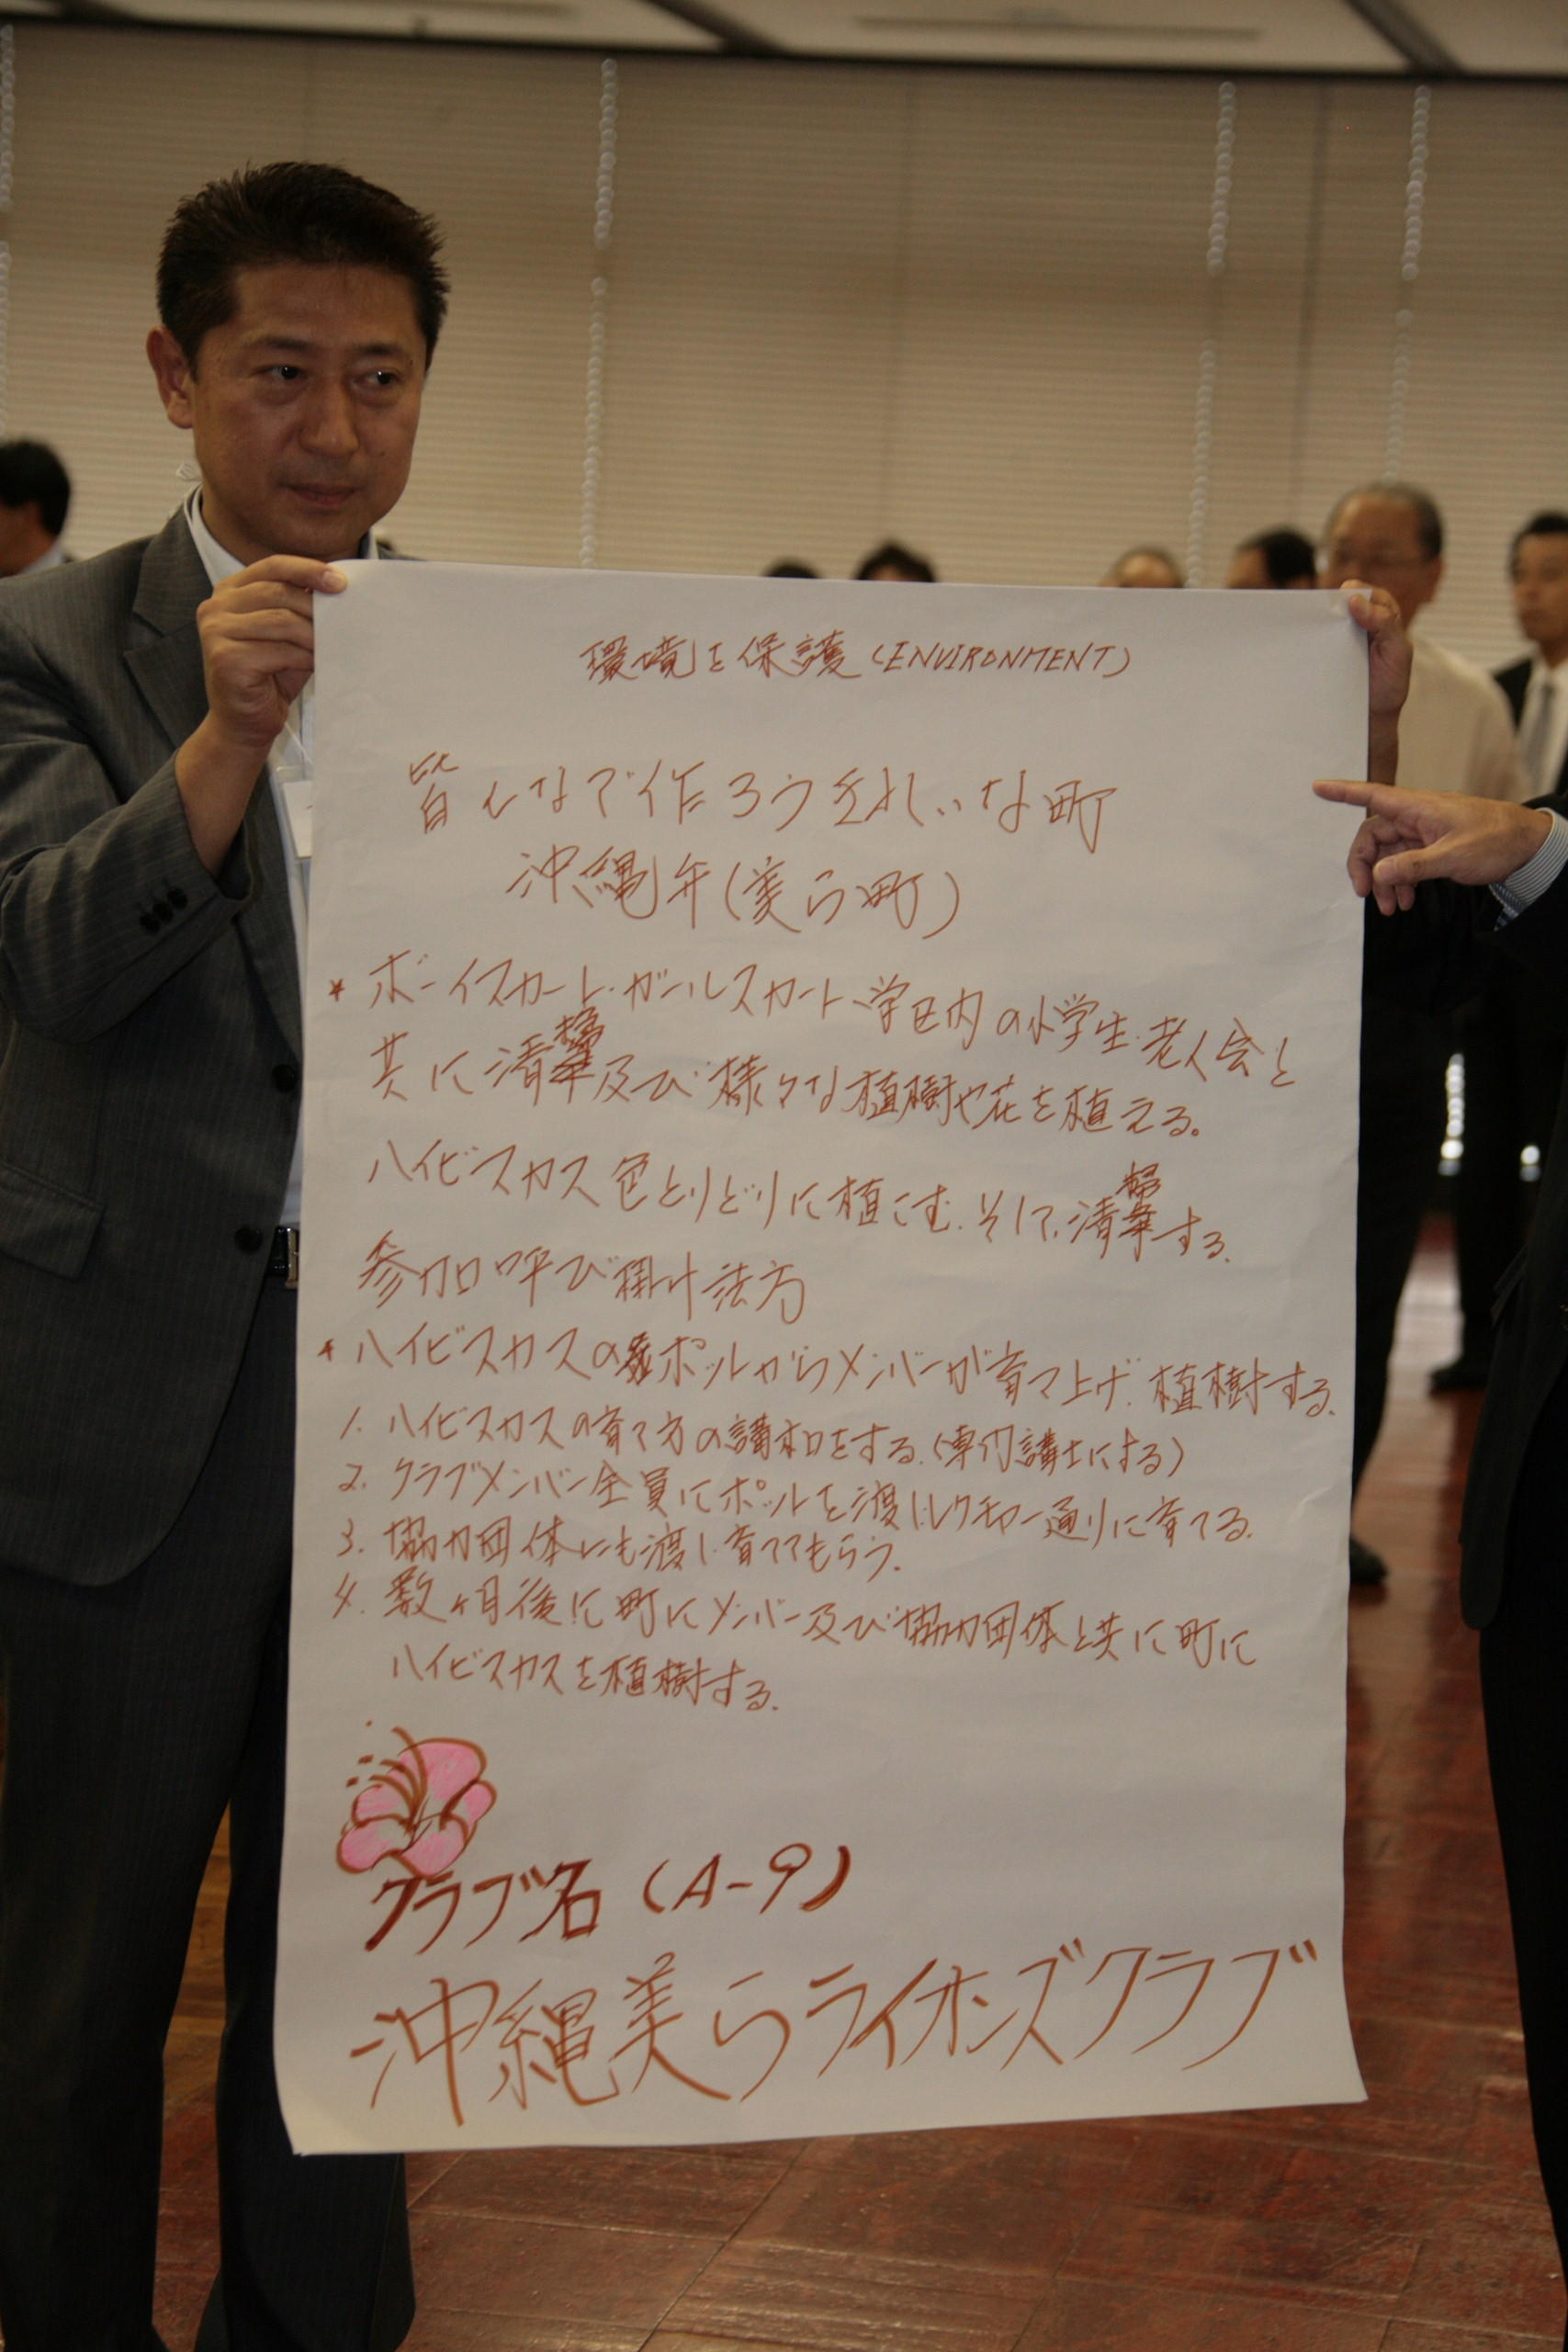 環境を保護(ENVIRONMENT)
皆んなで作ろうきれいな町
沖縄年(美ら町)
* ボーイスカート・ガールスカート、学区内の小学生・老人会と
共に清掃及び様々な植樹や花を植える。
ハイビスカス色とりどりに植こむ。そして、清掃する。
参加呼び掛け法方
* ハイビスカスのポットからメンバーが育て上げ、植樹する。
1. ハイビスカスの育て方の講和をする。(専門講士にする)
2. クラブメンバー全員にポットを渡しレクチャー通りに育てる。
3. 協力団体にも渡し育ててもらう。
4. 数ヶ月後に町にメンバー及び協力団体と共に町に
ハイビスカスを植樹する。
クラブ名(A-9)
沖縄美らライオンズクラブ